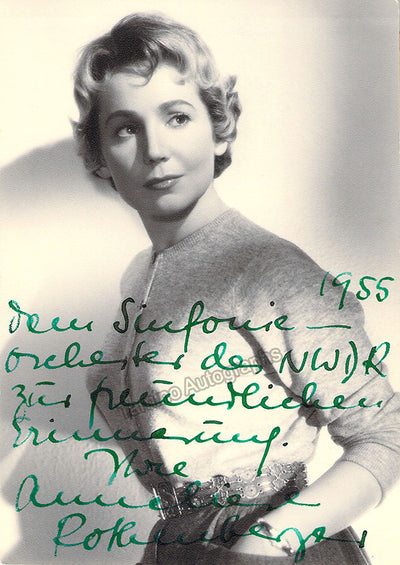 1955
Dem Sinfonie-
orchester des NWDR
zur freundlichen
Erinnerung.
Ihre
Anneliese
Rothenberger
Tamino Autographs